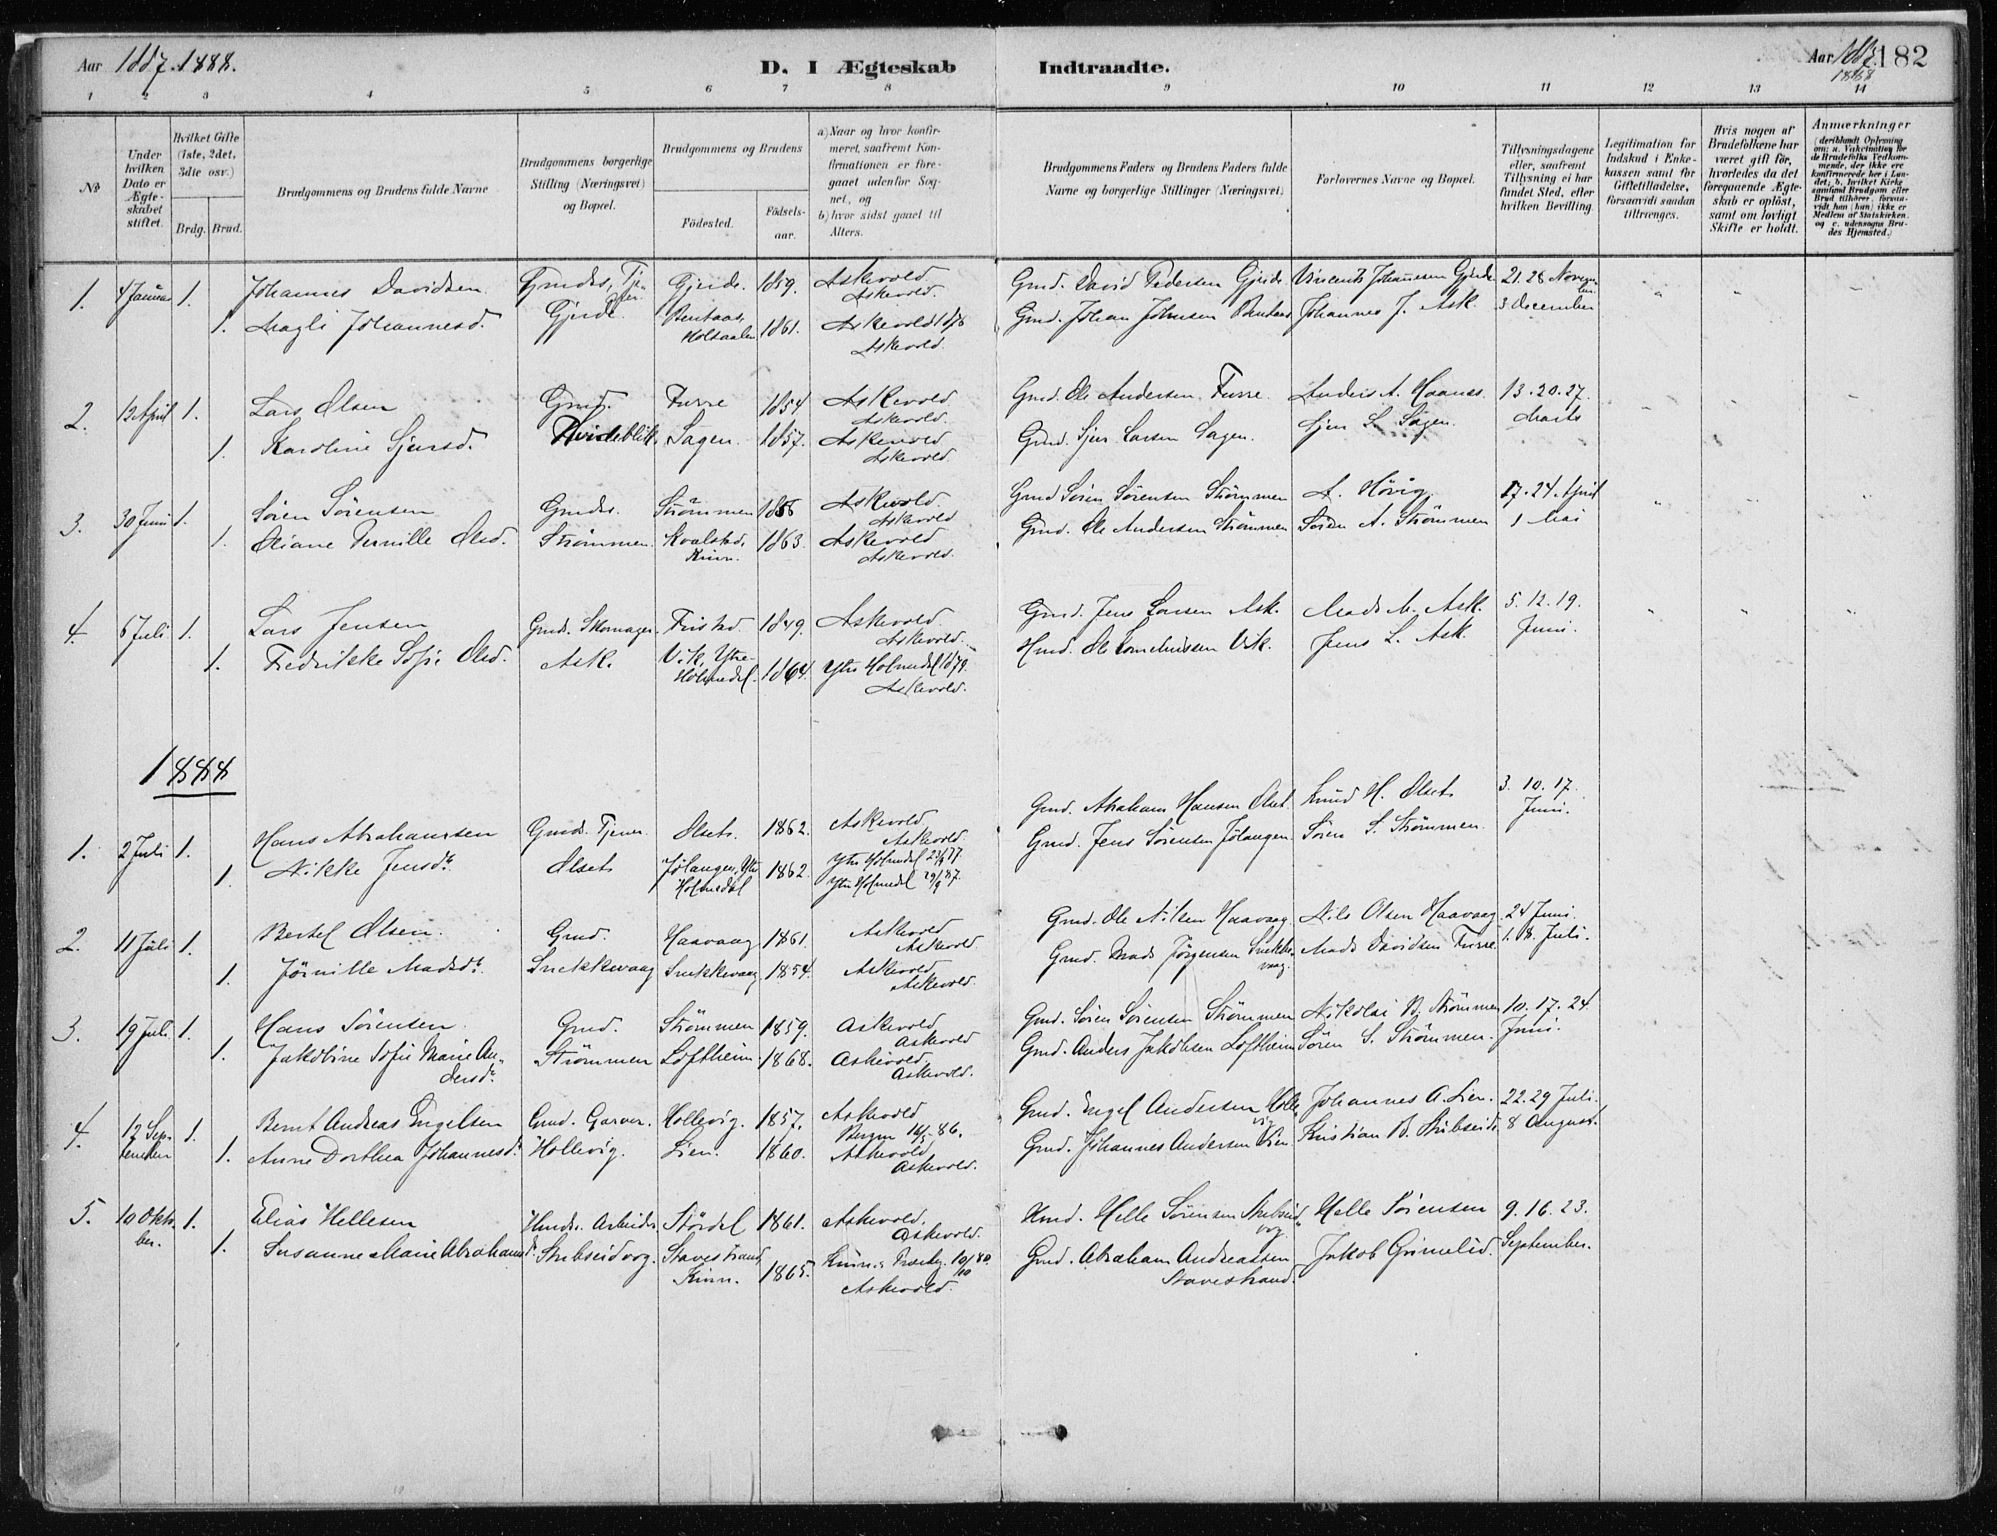 Aar 1887. 1888.
D. I Ægteskab Indtraadte.
Aar 1887. 182
1888
1 2 3 4 5 6 7 8 9 10 11 12 13 14
No
Under hvilken Dato er Ægteskabet stiftet.
Hvilket Gifte (1ste, 2det, 3die osv.)
Brdg. Brud.
Brudgommens og Brudens fulde Navne
Brudgommens borgerlige Stilling (Næringsvei) og Bopæl.
Brudgommens og Brudens
Fødested. Fødsels-aar.
a) Naar og hvor konfirmeret, saafremt Konfirmationen er foregaaet udenfor Sognet, og
b) hvor sidst gaaet til Alters.
Brudgommens Faders og Brudens Faders fulde Navne og borgerlige Stillinger (Næringsvei)
Forlovernes Navne og Bopæl.
Tillysningsdagene eller, saafremt Tillysning ei har fundet Sted, efter hvilken Bevilling.
Legitimation for Indskud i Enkekassen samt for Giftetilladelse, forsaavidt saadan tiltrænges.
Hvis nogen af Brudefolkene har været gift før, hvorledes da det foregaaende Ægteskab er opløst, samt om lovligt Skifte er holdt.
Anmærkninger
(deriblandt Oplysning om: a. Vaksination for de Brudefolks Vedkommende, der ikke ere konfirmerede her i Landet; b. hvilket Kirkesamfund Brudgom eller Brud tilhører, forsaavidt han (hun) ikke er Medlem af Statskirken. og c. udensogns Brudes Hjemsted.)
1. 4 Januar 1. Johannes Davidsen Gmds., Tje- Gjerde. 1859. Askevold Gmd. David Pedersen Gjerde Vincents Johannesen Gjerde 21. 28 Novem
Askevold. ber.
1. Magli Johannesd. Gjerde. Holsaalen 1861. Askevold 1876 Gmd. Johan Johnsen Johannes J. Ask. 3 December
Askevold.
2. 13 April 1. Lars Olsen Gmd. Furre 1854 Askevold Gmd. Ole Andersen Furre. Anders A. Haanes. 13. 20. 27.
Askevold.
1. Karoline Sjursd. Hvideblik. Sagen. 1857. Askevold Gmd. Sjur Larsen Sagen. Sjur L. Sagen. Marts
Askevold.
3. 30 Juni 1. Søren Sørensen Gmds. Strømmen 1856 Askevold. Gmd Søren Sørensen Strømmen A. Høvig. 17. 24. April
Askevold
1. Oliane Pernille Olsd. Strømmen Kvalstad, Kinn. 1863. Askevold Gmd. Ole Andersen Strømmen Søren A. Strømmen 1 Mai
Askevold.
4. 6 Juli 1. Lars Jensen Gmds. Skomager. Fristad. 1849. Askevold. Gmd. Jens Larsen Ask. Mads M. Ask. 5. 12. 19.
Askevold.
1. Fredrikke Sofie Olsd. Ask. Vik, Ytre Holmedal. 1864. Ytre Holmedal 1879. Hmd. Ole Cornelius­sen Vik. Jens L. Ask. Juni.
Askevold.
1888
1. 2 Juli 1. Hans Abrahamsen Gmds. Tjener. Olset. 1862. Askevold Gmd. Abraham Hansen Olset. Knud H. Olset. 3. 10. 17.
Askevold.
1. Nikke Jensdr. Olset Jølanger, Ytre Holmedal 1862. Ytre Holmedal 23/9 77 Gmd. Jens Sørensen Jølanger. Søren S. Strømmen. Juni.
Ytre Holmedal 29/9 87.
2. 11 Juli 1. Bertel Olsen. Gmd. Haavaag 1861. Askevold Gmd. Ole Nilsen Haavaag. Nils Olsen Haavaag. 24 Juni.
Askevold.
1. Jørnille Madsdr. Snekkevaag Snekkevaag 1854. Askevold Gmd. Mads Jørgensen Snekke-vaag. Mads Davidsen Furre. 1. 8. Juli.
Askevold.
3. 19 Juli 1. Hans Sørensen Gmd. Strømmen 1859. Askevold Gmd. Søren Sørensen Strømmen Nikolai B. Strømmen 10. 17. 24.
Askevold
1. Jakobine Sofie Marie An-dersdr. Strømmen Loftheim 1868. Askevold. Gmd. Anders Jakobsen Loftheim Søren S. Strømmen. Juni.
Askevold.
4. 12 September 1. Bernt Andreas Engelsen Gmd. Garver. Hollevig. 1857. Askevold Gmd. Engel Andersen Holle-vig Johannes A. Lien. 22. 29 Juli.
Bergen 16/5 86.
1. Anne Dorthea Johannesdr. Hollevig. Lien. 1860. Askevold, Gmd. Johannes Andersen Lien. Kristian B. Stubseid. 8 August.
Askevold.
5. 10 Oktober. 1. Elias Hellesen Hmds. Arbeider Størdal 1861. Askevold. Hmd. Helle Sørensen Stubseid-vog Helle Sørensen 9. 16. 23.
Askevold.
1. Susanne Marie Abrahamsdr. Stubseidvog. Stavestrand, Kinn. 1865. Kinns Præstg. 10/10 80. Gmd. Abraham Andreassen Stavestrand. Jakob Grimelid. September.
Askevold.